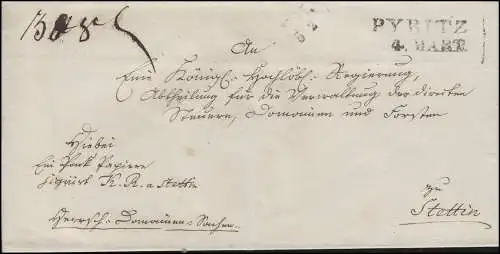 PYRITZ
4. MART.
An
Eine Königl: Hochlöbl: Regierung,
Abtheilung für die Verwaltung der directen
Steuern, Domainen und Forsten
zu
Stettin
Hiebei
Ein Pack Papiere
signirt K. R. a Stettin
Herrsch: Domainen-Sachen.